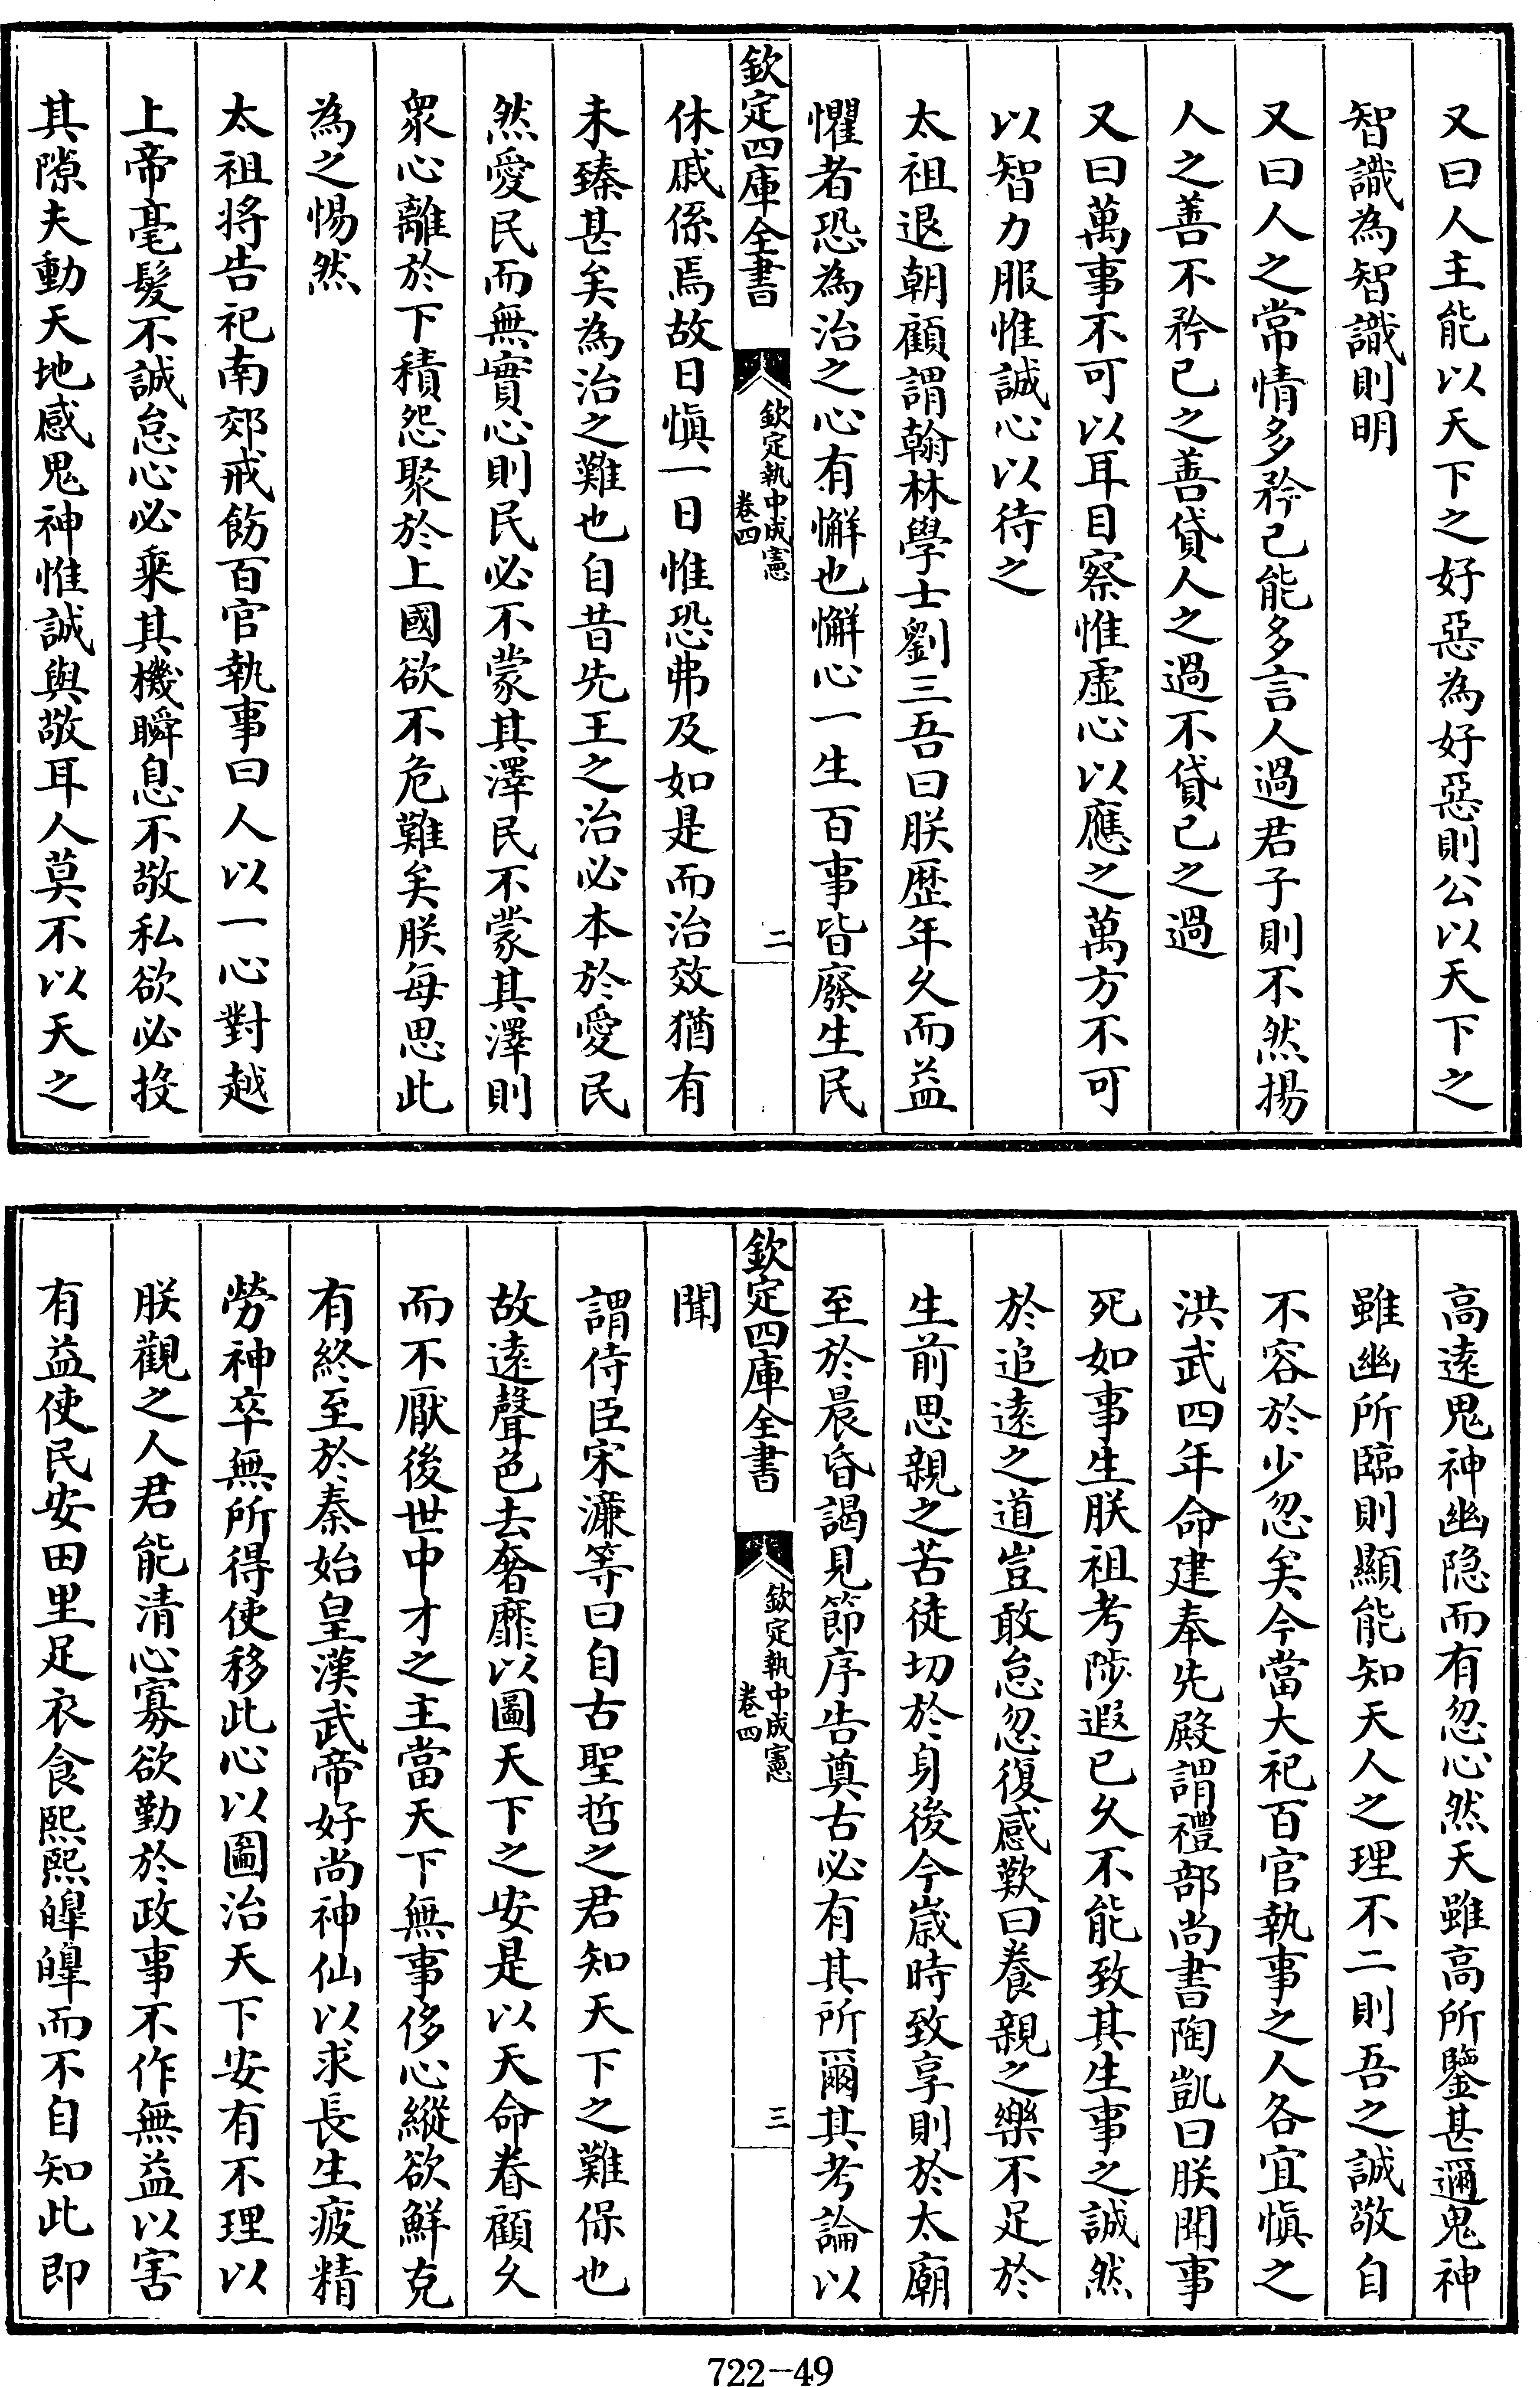 又曰人主能以天下之好惡為好惡則公以天下之
智識為智識則明
又曰人之常情多矜己能多言人過君子則不然揚
人之善不矜己之善貸人之過不貸己之過
又曰萬事不可以耳目察惟虛心以應之萬方不可
以智力服惟誠心以待之
太祖退朝顧謂翰林學士劉三吾曰朕歷年久而益
懼者恐為治之心有懈也懈心一生百事皆廢生民
欽定四庫全書
欽定執中成憲
卷四
二
休戚係焉故日慎一日惟恐弗及如是而治效猶有
未臻甚矣為治之難也自昔先王之治必本於愛民
然愛民而無實心則民必不蒙其澤民不蒙其澤則
衆心離於下積怨聚於上國欲不危難矣朕每思此
為之惕然
太祖將告祀南郊戒飭百官執事曰人以一心對越
上帝毫髮不誠怠心必乘其機瞬息不敬私欲必投
其隙夫動天地感鬼神惟誠與敬耳人莫不以天之
高遠鬼神幽隐而有忽心然天雖高所鑒甚邇鬼神
雖幽所臨則顯能知天人之理不二則吾之誠敬自
不容於少忽矣今當大祀百官執事之人各宜慎之
洪武四年命建奉先殿謂禮部尚書陶凱曰朕聞事
死如事生朕祖考陟遐已久不能致其生事之誠然
於追遠之道豈敢怠忽復感歎曰養親之樂不足於
生前思親之苦徒切於身後今歲時致享則於太廟
至於晨昏謁見節序告奠古必有其所爾其考論以
欽定四庫全書
欽定執中成憲
卷四
三
聞
謂侍臣宋濂等曰自古聖哲之君知天下之難保也
故遠聲色去奢靡以圖天下之安是以天命眷顧久
而不厭後世中才之主當天下無事侈心縱欲鮮克
有終至於秦始皇漢武帝好尚神仙以求長生疲精
勞神卒無所得使移此心以圖治天下安有不理以
朕觀之人君能清心寡欲勤於政事不作無益以害
有益使民安田里足衣食熙熙皥皥而不自知此即
722-49